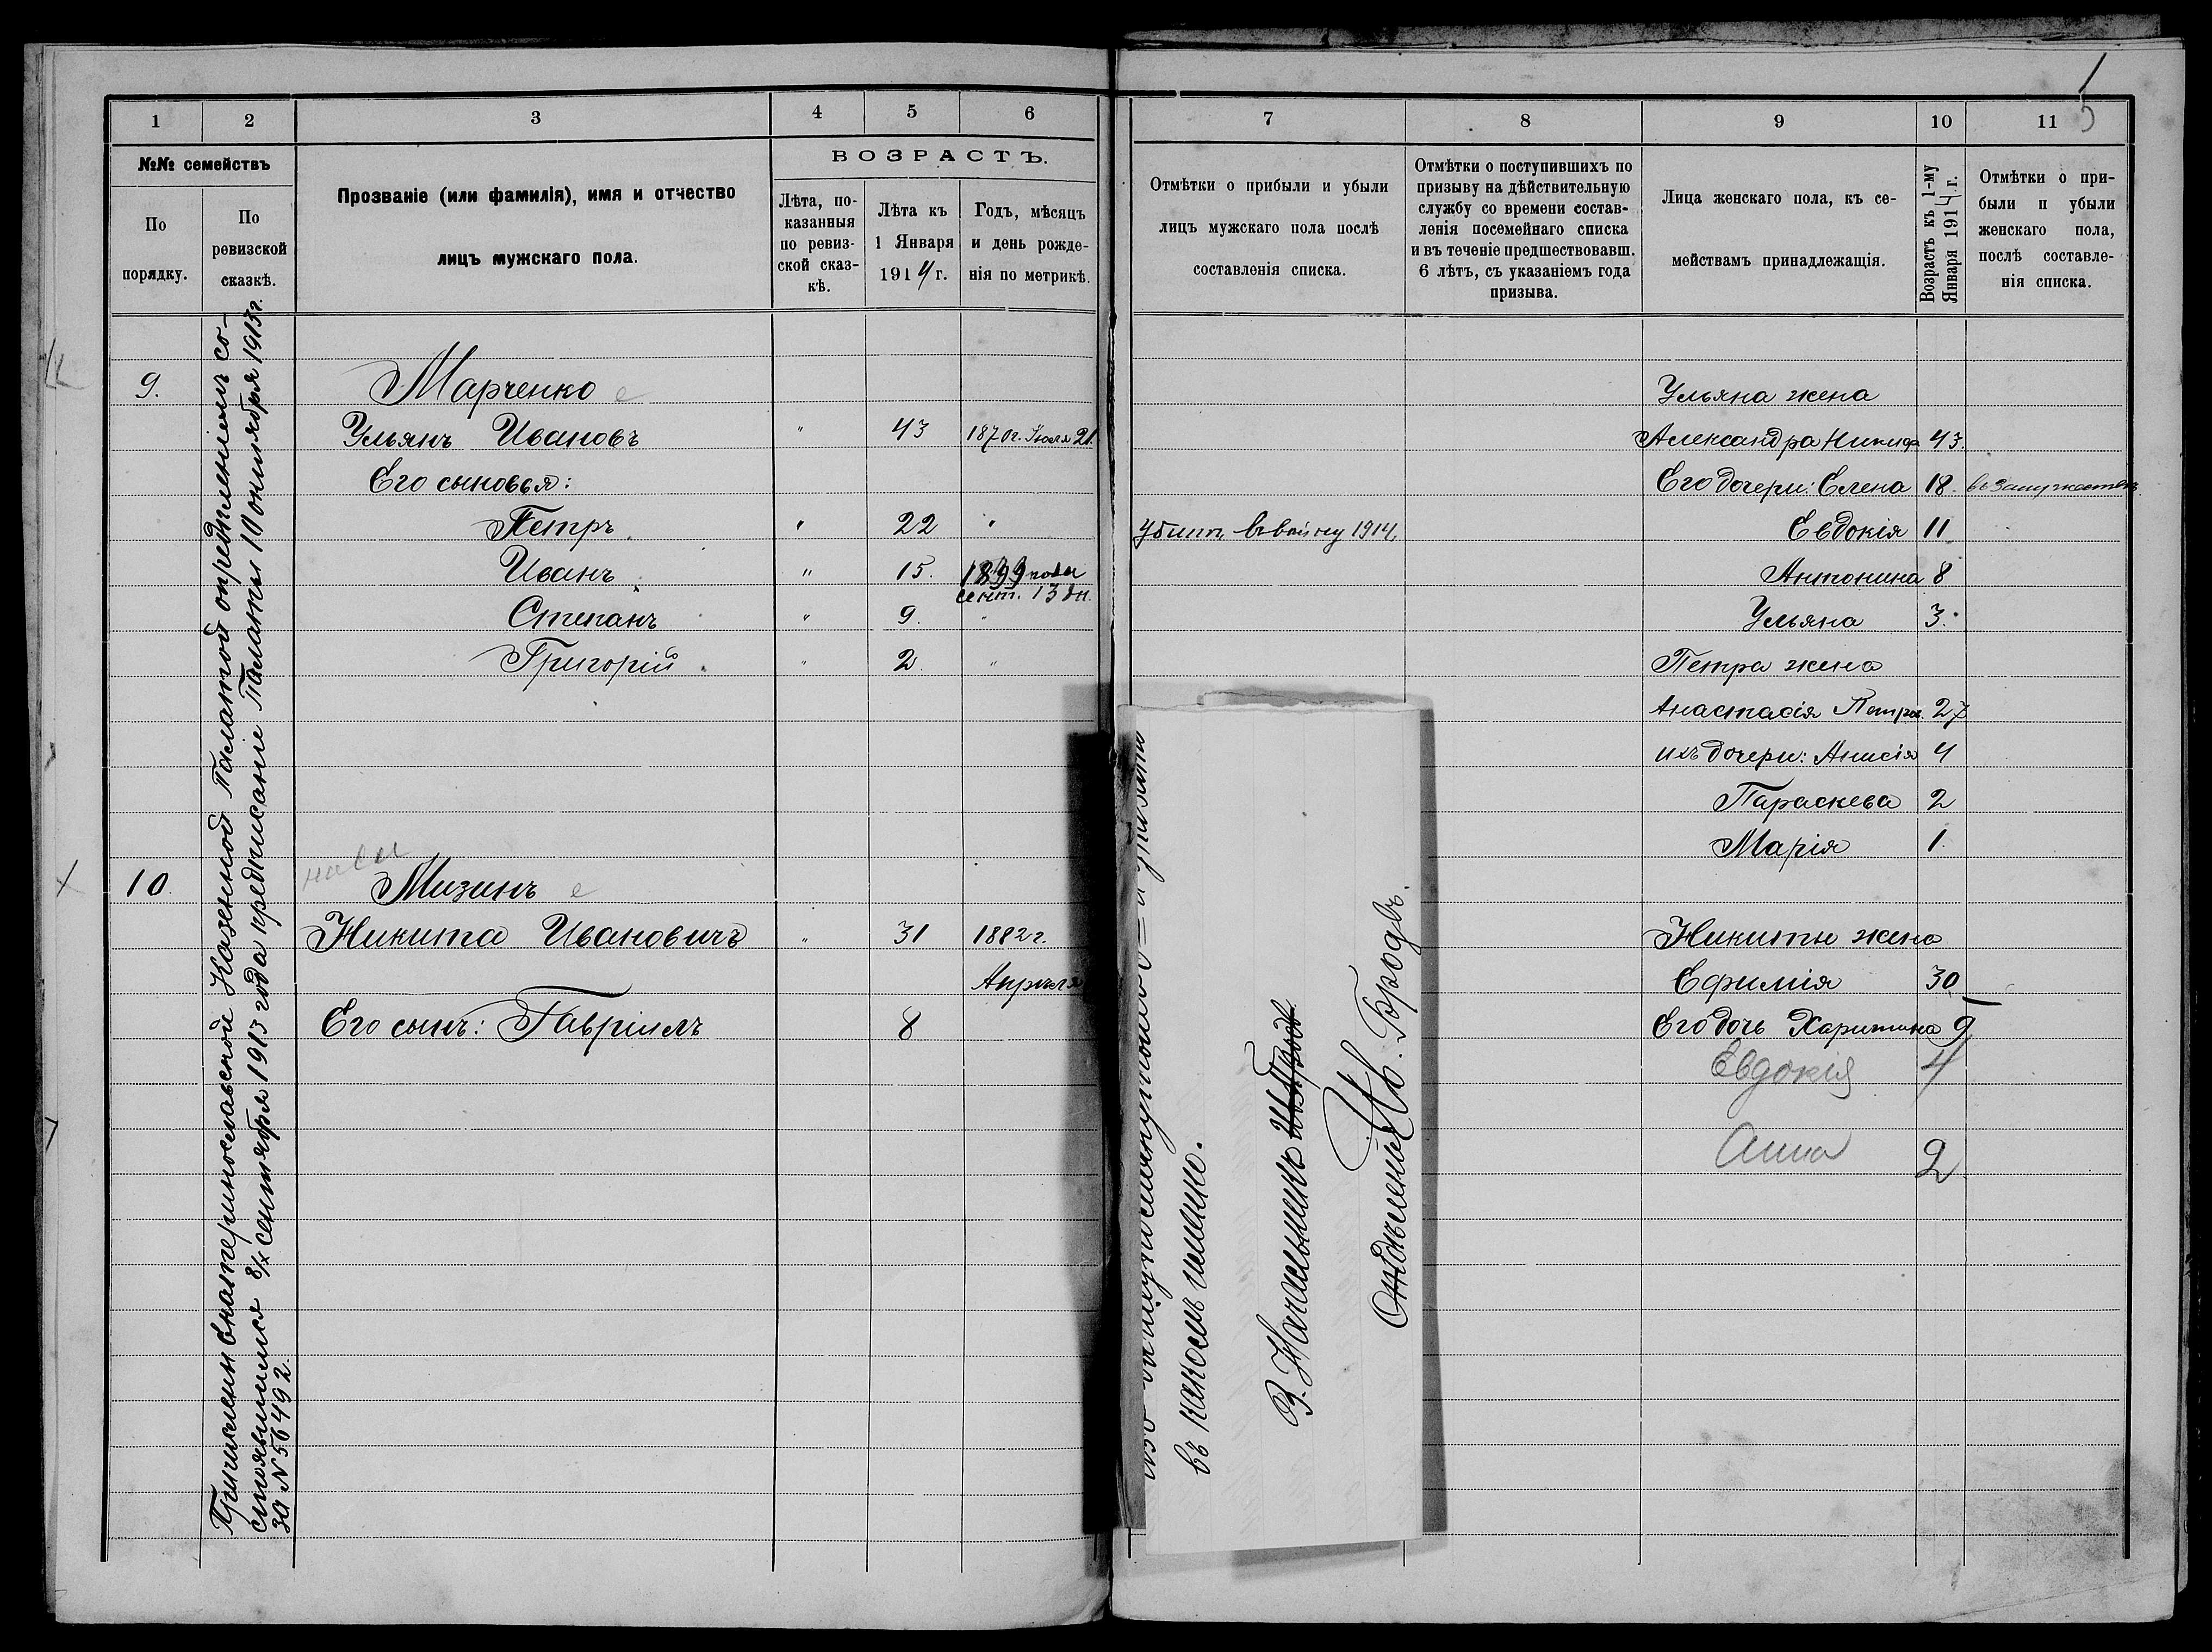 5
1
2
3
4
5
6
№№ семействъ
По порядку.
По ревизской сказкѣ.
Прозваніе (или фамилія), имя и отчество
лицъ мужскаго пола.
ВОЗРАСТЪ.
Лѣта, по-
казанныя
по ревиз-
ской сказ-
кѣ.
Лѣта къ
1 Января
1914 г.
Годъ, мѣсяцъ
и день рожде-
нія по метрикѣ.
Причислены Екатеринославской Казенной Палатой опредѣленіемъ со-
стоявшимся 8/ сентября 1913 года предписаніе Палаты 10 октября 1913 г.
за № 56492.
9.
Марченко е
Ульянъ Ивановъ " 43 1870 г. Іюля 21.
Его сыновья:
Петръ " 22 "
Иванъ " 15. 1899 года
сент. 13 дн.
Степанъ " 9. "
Григорій " 2. "
10.
Мизинъ е
Никита Ивановичъ " 31 1882 г.
Апрѣля
Его сынъ: Гавріилъ 8
7
8
9
10
11
Отмѣтки о прибыли и убыли
лицъ мужскаго пола послѣ
составленія списка.
Отмѣтки о поступившихъ по
призыву на дѣйствительную
службу со времени состав-
ленія посемейнаго списка
и въ теченіе предшествовавш.
6 лѣтъ, съ указаніемъ года
призыва.
Лица женскаго пола, къ се-
мействамъ принадлежащія.
Возрастъ къ 1-му
Января 1914 г.
Отмѣтки о при-
были п убыли
женскаго пола,
послѣ составле-
нія списка.
Ульяна жена
Александра Никиф 43.
Его дочери: Елена 18. въ замужествѣ
убитъ въ войну 1914 Евдокія 11
Антонина 8
Ульяна 3.
Петра жена
Анастасія Петров. 27
ихъ дочери: Анисія 4
Параскева 2
Марія 1.
Никиты жена
Ефимія 30
Его дочь Харитина 9
Евдокія 4
Анна 2
въ какомъ именно.
В. Начальникъ
Отдѣленія Ив. Бродъ.